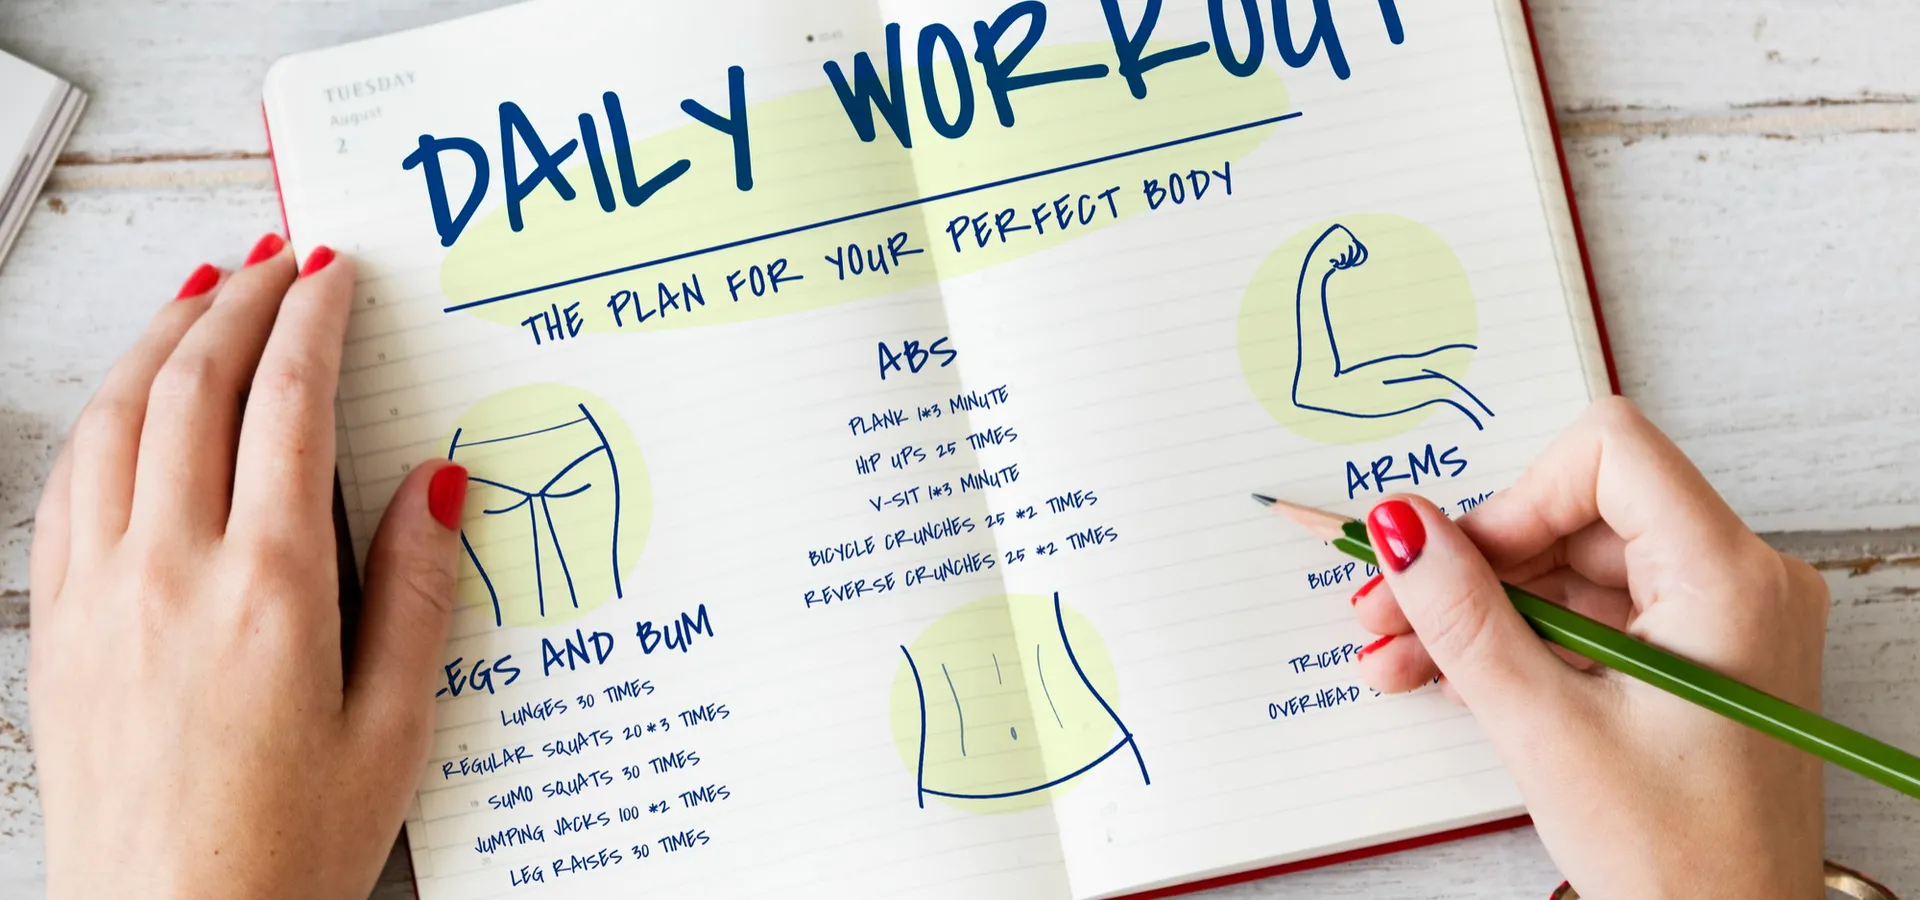 TUESDAY
August
2
DAILY WORKOUT
THE PLAN FOR YOUR PERFECT BODY
LEGS AND BUM
LUNGES 30 TIMES
REGULAR SQUATS 20*3 TIMES
SUMO SQUATS 30 TIMES
JUMPING JACKS 100 *2 TIMES
LEG RAISES 30 TIMES
ABS
PLANK 1*3 MINUTE
HIP UPS 25 TIMES
V-SIT 1*3 MINUTE
BICYCLE CRUNCHES 25 *2 TIMES
REVERSE CRUNCHES 25 *2 TIMES
ARMS
BICEP
TRICEPS
OVERHEAD